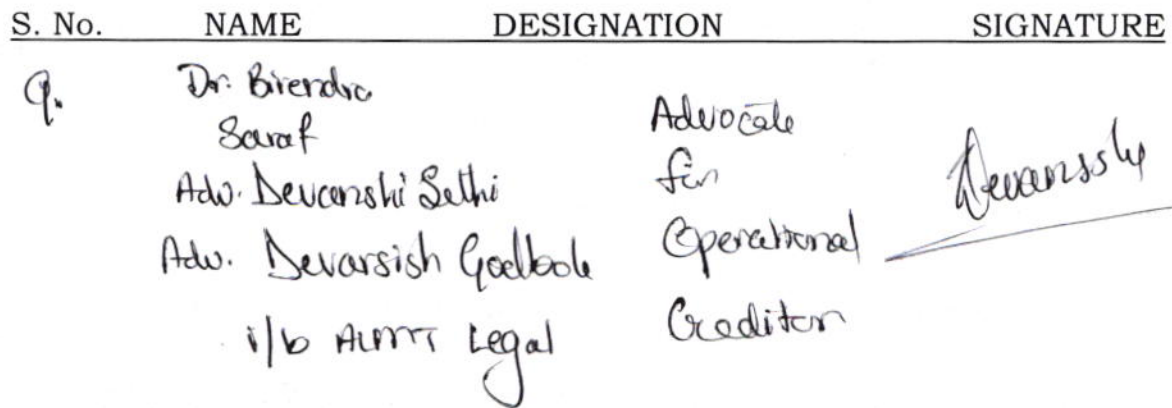 S. No. NAME DESIGNATION SIGNATURE
9. Dr. Birendra
Saraf
Adv. Devanshi Sethi
Adv. Devarsish Godbole
i/b ALMT Legal
Advocate
for
Operational
Creditor